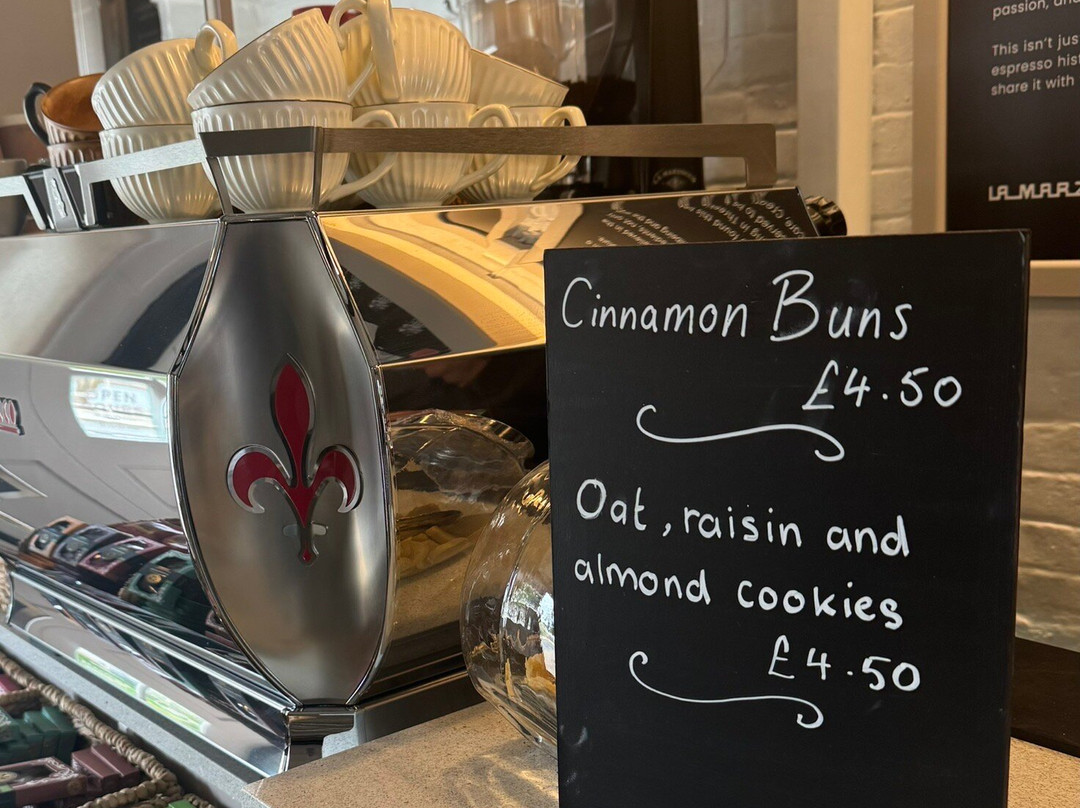 passion, and
This isn't jus
espresso hist
share it with
LA MARZ
OPEN
Cinnamon Buns
£4.50
Oat, raisin and
almond cookies
£4.50